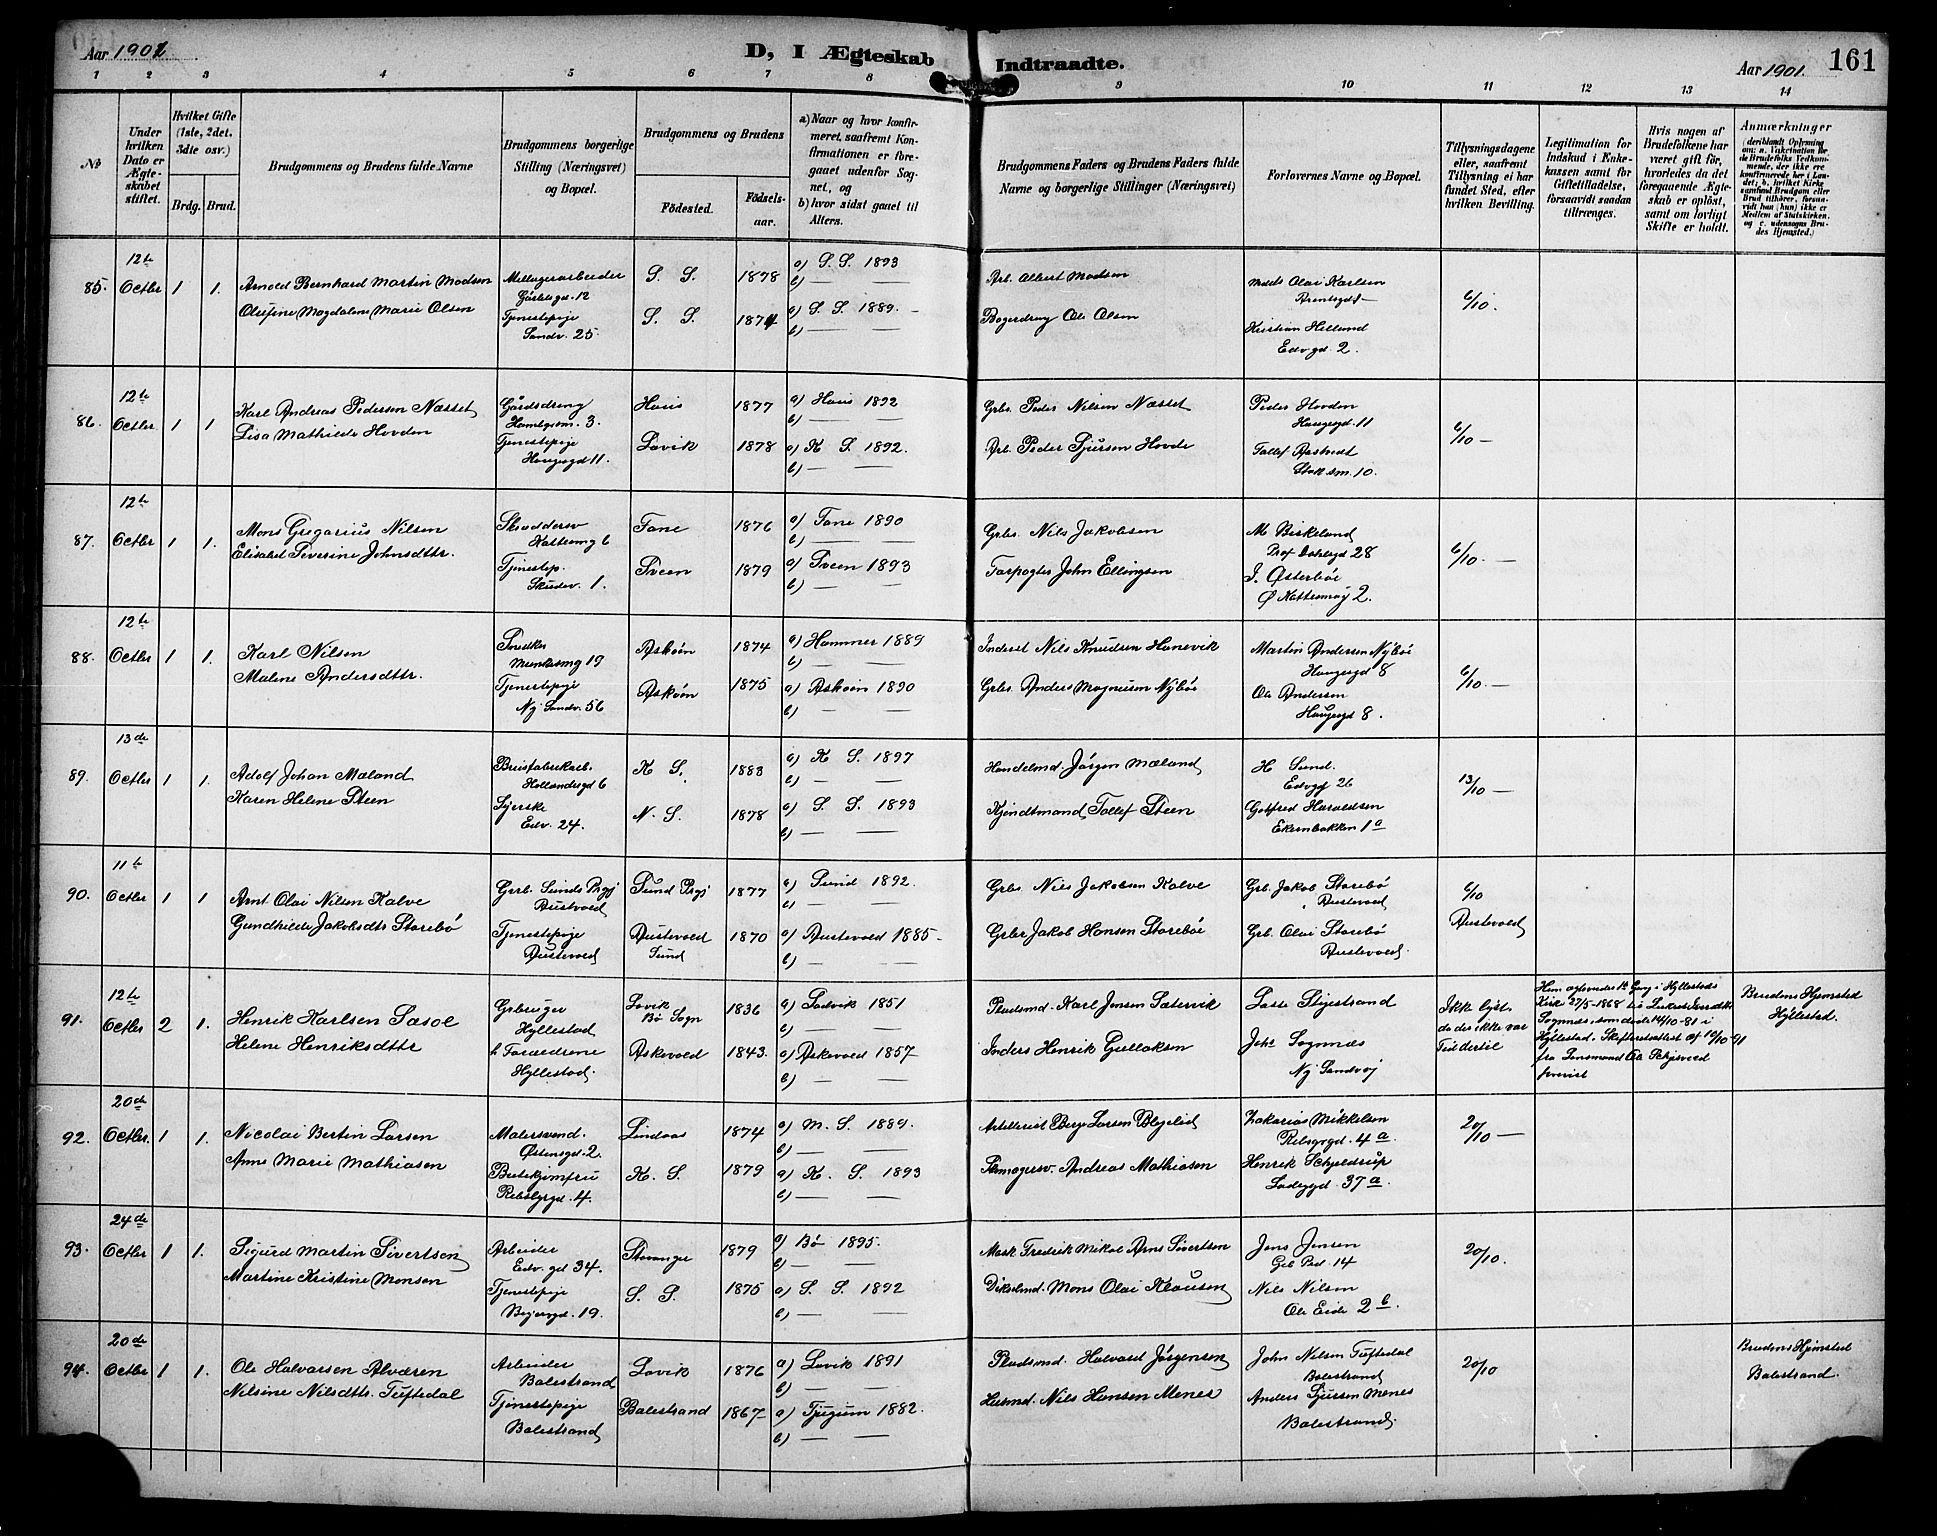 Aar 1901.
D, I Ægteskab Indtraadte.
Aar 1901. 161
1 2 3 4 5 6 7 8 9 10 11 12 13 14
No
Under hvilken Dato er Ægteskabet stiftet.
Hvilket Gifte (1ste, 2det, 3die osv.)
Brdg. Brud.
Brudgommens og Brudens fulde Navne
Brudgommens borgerlige Stilling (Næringsvei) og Bopæl.
Brudgommens og Brudens
Fødested.
Fødselsaar.
a) Naar og hvor konfirmeret, saafremt Konfirmationen er foregaaet udenfor Sognet, og
b) hvor sidst gaaet til Alters.
Brudgommens Faders og Brudens Faders fulde Navne og borgerlige Stillinger (Næringsvei)
Forlovernes Navne og Bopæl.
Tillysningsdagene eller, saafremt Tillysning ei har fundet Sted, efter hvilken Bevilling.
Legitimation for Indskud i Enkekassen samt for Giftetilladelse, forsaavidt saadan tiltrænges.
Hvis nogen af Brudefolkene har været gift før, hvorledes da det foregaaende Ægteskab er opløst, samt om lovligt Skifte er holdt.
Anmærkninger (deriblandt Oplysning om: a. Vakcination for de Brudefolks Vedkommende, der ikke ere konfirmerede her i Landet; b. hvilket Kirkesamfund Brudgom eller Brud tilhører, forsaavidt han (hun) ikke er Medlem af Statskirken, og c. udensogns Brudes Hjemsted.)
85. 12te Octbr 1 1.
Arnold Bernhard Martin Madsen
Olufine Magdalene Marie Olsen
Møllagerarbeider
12
Tjenestepige
Sandv. 25
S. S. 1878
S. S. 1874
a) S. S. 1893
b) — —
a) S. S. 1889. —
b) — —
Arb. Albert Madsen
Ole Olsen
Mads Olai Karlsen
Kristian Helland
Edv gd. 2.
6/10.
86. 12te Octbr 1 1
Karl Andreas Pedersen Næsset
Lisa Mathilde Hovden
Gårdsdreng
3.
Tjenestepige
Haugegd 11.
Haus 1877
Lavik 1878
a) Haus 1892
b) — —
a) K S. 1892.
b) — —
Grbr. Peder Nilsen Næsset
Arb. Peder Sjursen Hovde
Peder Hovden
Haugegd. 11
Tollef Aastvedt
10.
6/10 —
87. 12te Octbr 1 1.
Mons Gregarius Nilsen
Elisabet Severine Johnsdttr.
Skræddersv
Nattemng 6
Tjenestep.
Skudev. 1.
Fane 1876
Sveen 1879
a) Fane 1890
b) — —
a) Sveen 1893
b) — —
Grbr. Nils Jakobsen
Forpagter John Ellingsen
M Birkeland
Prof Dahlsgd 28
J. Østerbøe
Ø Nattemng 2.
6/10. —
88. 12te Octbr 1 1.
Karl Nilsen
Malene Andersdttr.
Snedker
Munkesmg 19
Tjenestepige
Ny Sandv. 56
Askøen 1874
Askøen 1875
a) Hammer 1889
b) — —
a) Askøen 1890
b) — —
Inderst Nils Knudsen Hanevik
Grbr. Anders Magnusen Nybøe
Martin Andersen Nybøe
Haugegd 8
Ole Andersen
Haugegd 8.
6/10. —
89. 13de Octbr 1 1.
Adolf Johan Mæland
Karen Helene Steen
Brusfabrikarb.
Hollandergd 6
Syerske
Edv. 24.
K S. 1883
N. S. 1878
a) K S. 1897
b) — —
a) S. S. 1893
b) — —
Handelmd. Jørgen Mæland
Kjendtmand Tollef Steen
H Sund.
Edvgd 26
Gotfred Haraldsen
Ekernbakken 1a
13/10 —
90. 11te Octbr 1 1
Arnt Olai Nilsen Kalve
Gundhilde Jakobsdtr Storebø
Grbr. Sunds Prgj
Austevold
Tjenestepige
Austevold
Sund Prgj 1877
Austevold Sund 1870
a) Sund 1892.
b) — —
a) Austevold 1885 —
b) — —
Grbr Nils Jakobsen Kalve
Grbr Jakob Hansen Storebøe
Grb. Jakob Storebø
Austevold
Grb. Olai Storebø
Austevold.
6/10
Austevold
91. 12te Octbr 2 1.
Henrik Karlsen Sasoe
Helene Henriksdttr
Grbruger
Hyllestad
Hyllestad.
Lavik
Bø Sogn 1836
Askevold 1843.
a) Ladvik 1851
b) — —
a) Askevold 1857
b) — —
Pladsmd. Karl Jensen Satervik
Inders Henrik Gulloksen
Lasse Stigestrand
Johs Sognnæs
Ny Sandvej
Ikke lyst, da der ikke var Tid dertil
i Hyllestads Kirke 27/5-1868
Sognnæs, som døde 14/10-81 i Hyllestad. Skifteretsattest af 10/10-91 fra Lensmand Ole
forevist
Brudens Hjemsted
Hyllestad.
92. 20de Octbr. 1 1.
Nicolai Bertin Larsen
Anne Marie Mathiasen
Malersvend.
Østensgd. 2.
Butikjomfru
Rebslgrgd. 4.
Lindaas 1874
K. S. 1879
a) M. S. 1889.
b) — —
a) K. S. 1893
b) — —
Berge Larsen
Andreas Mathiasen
Zakarias Mikkelsen
Rebsgrgd. 4a.
Henrik Schjeldrup
Ladeggd. 37a.
20/10 —
93. 24de Octbr 1 1.
Sigurd Martin Sivertsen
Martine Kristine Monsen
Arbeider
Edv. gd 34.
Tjenestepige
19.
Stavanger 1879
S. S. 1875
a) Bø 1895.
b) — —
a) S. S. 1892
b) — —
Mask Fredrik Mikal Arns Sivertsen
Mons Olai Klausen
Jens Jensen
14
Nils Nilsen
Ole Eide 2b.
20/10.
94. 20de Octbr 1 1.
Ole Halvarsen Alværen
Nilsine Nilsdtr. Tuftedal
Arbeider
Balestrand
Tjenestepige
Balestrand
Lavik 1876
Balestrand 1867
a) Lavik 1891
b) — —
a) Tjugum 1882.
b) — —
Pladsmd. Halvard Jørgensen
Husmd. Nils Hansen Menes
John Nilsen Tuftedal
Balestrand
Anders Sjursen Menes
Balestrand.
20/10
Brudens Hjemsted
Balestrand.